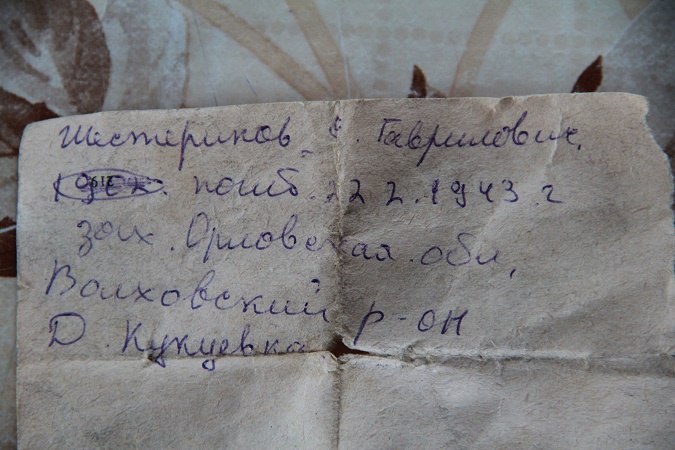 Шестериков Е. Гаврилович,
погиб. 22 2. 1943. г
зах. Орловская. обл,
Волховский р-он
Д. Кукуевка